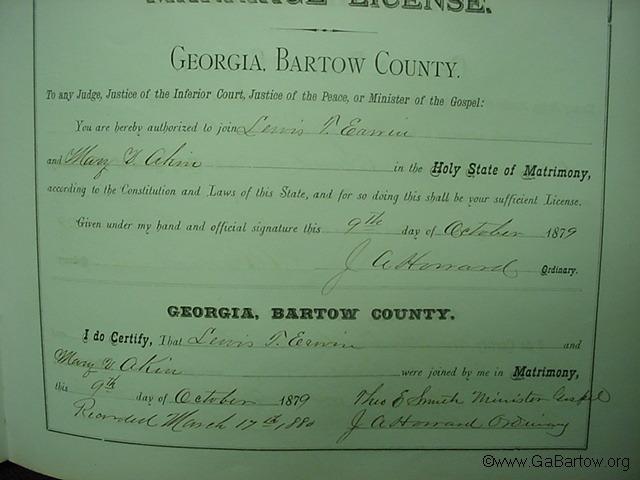 MARRIAGE LICENSE.
GEORGIA, BARTOW COUNTY.
To any Judge, Justice of the Inferior Court, Justice of the Peace, or Minister of the Gospel:
You are hereby authorized to join Lewis T. Erwin
and Mary V. Akin in the Holy State of Matrimony,
according to the Constitution and Laws of this State, and for so doing this shall be your sufficient License.
Given under my hand and official signature this 9th day of October 1879
J A Howard Ordinary.
GEORGIA, BARTOW COUNTY.
I do Certify, That Lewis T. Erwin and
Mary V. Akin were joined by me in Matrimony,
this 9th day of October 1879 Theo E Smith Minister Gospel
Recorded March 17th 1880 J A Howard Ordinary
©www.GaBartow.org